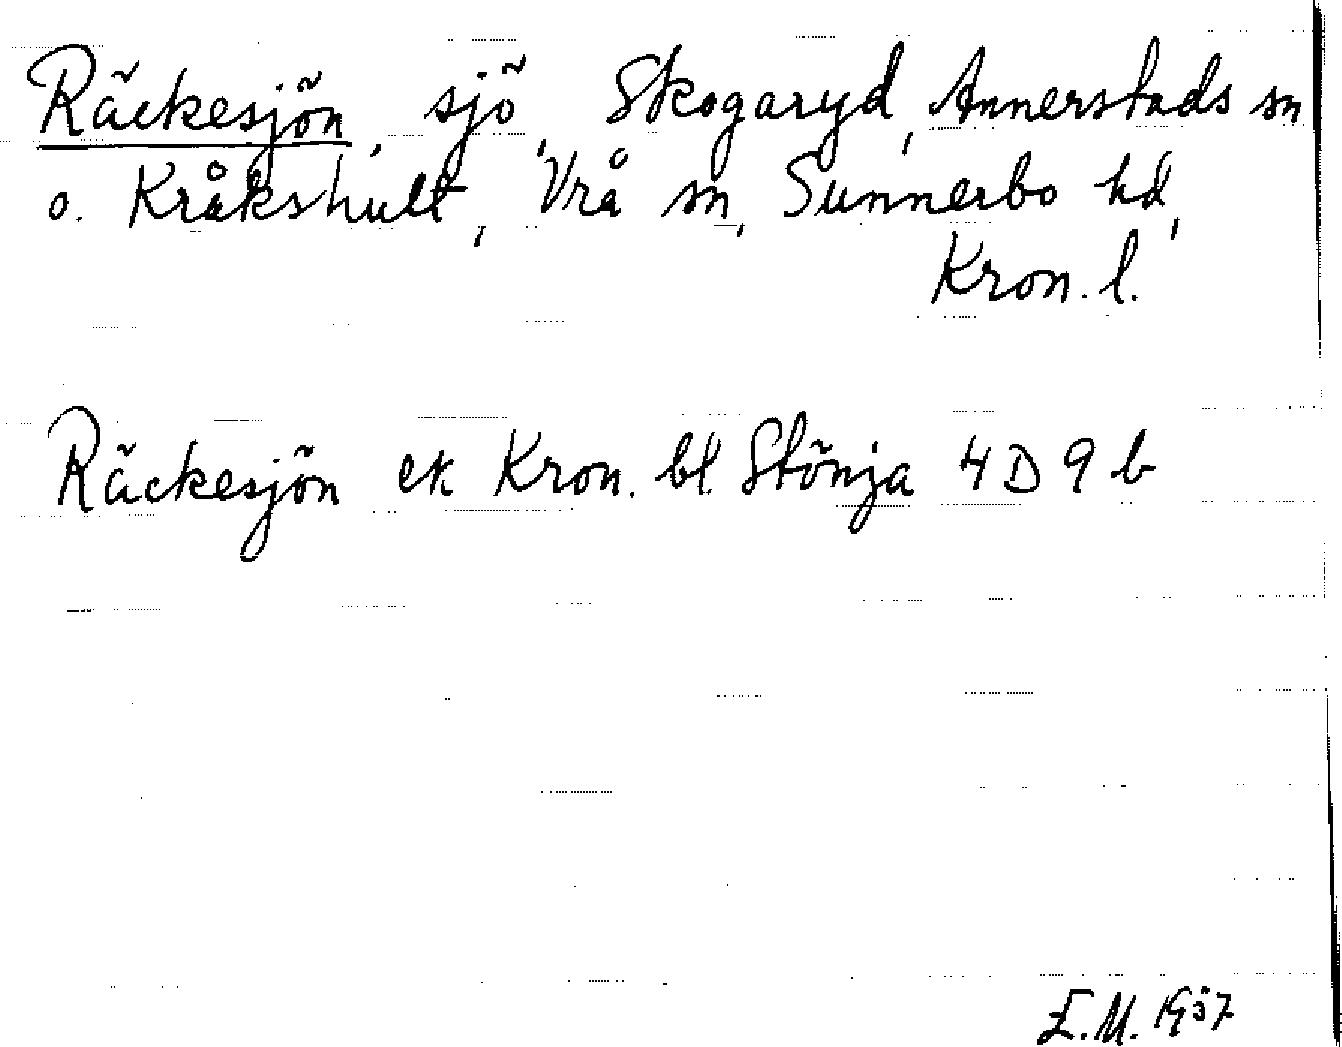 Räckesjön, sjö, Skogaryd, Annerstads sn
o. Kråkshult, Vrå sn, Sunnerbo hd,
Kron. l.
Räckesjön ek Kron. bl. Stönja 4 D 9 b
E.M. 1957